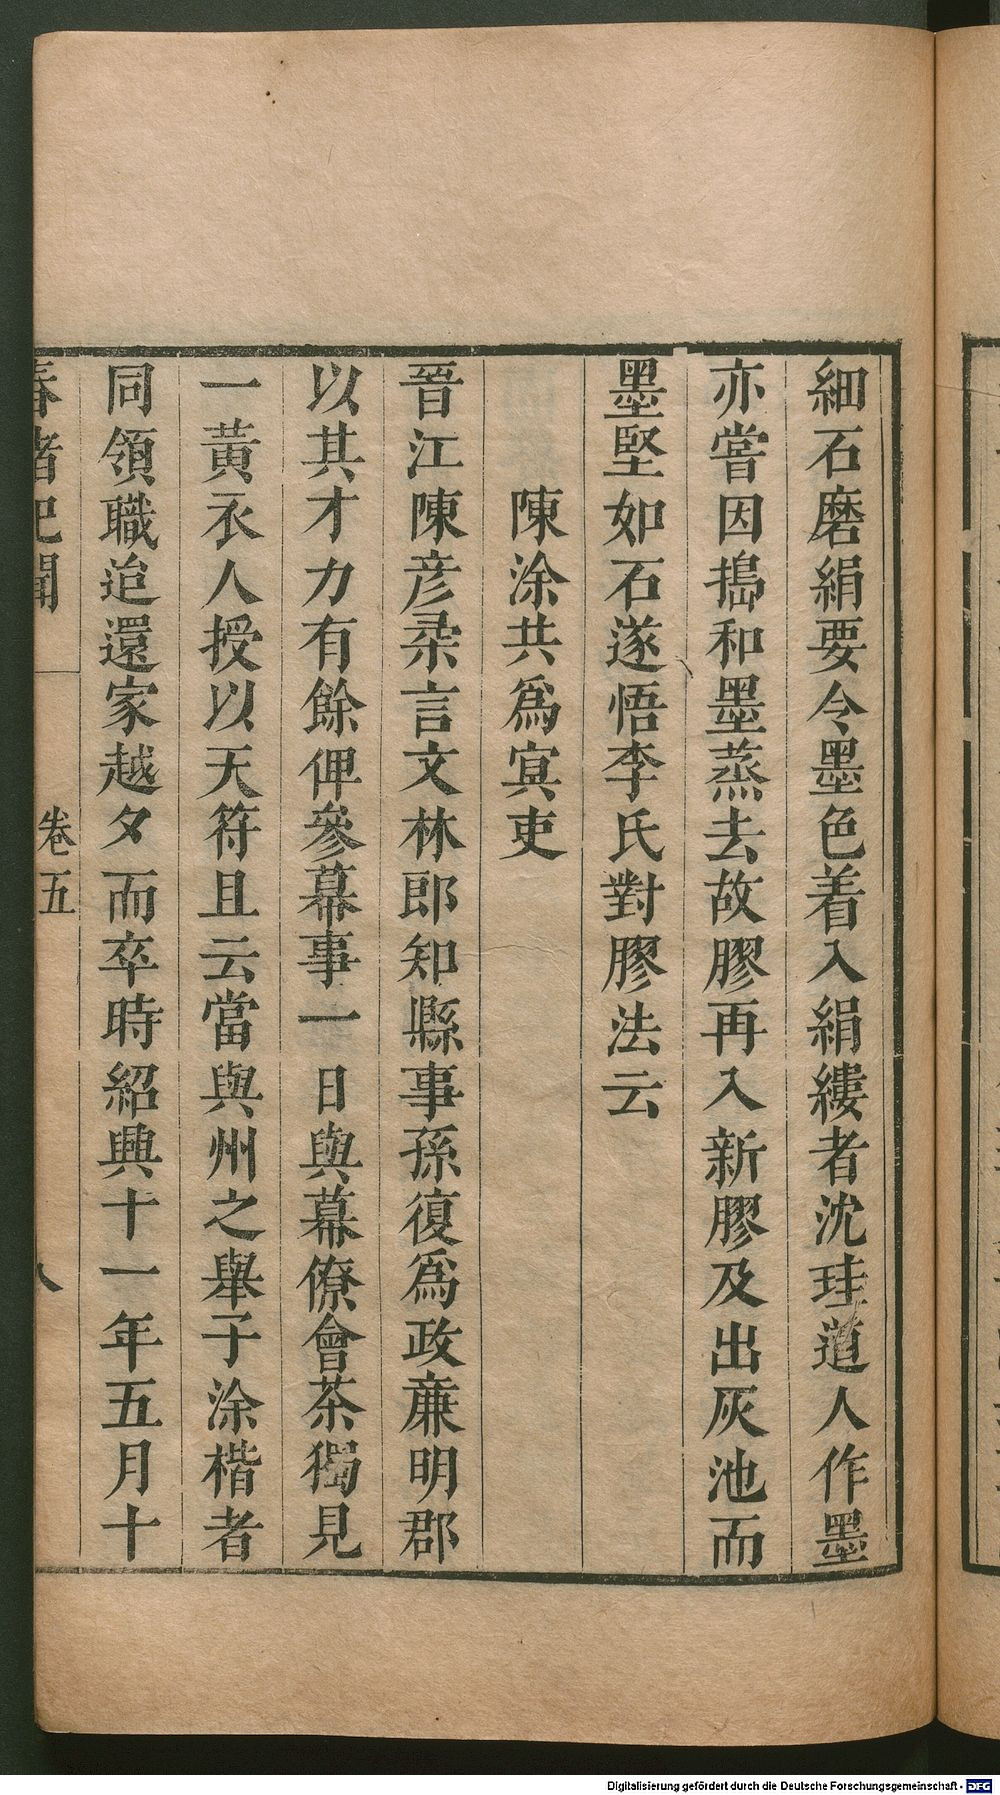 細石磨絹要令墨色着入絹縷者沈珪道人作墨
亦嘗因搗和墨蒸去故膠再入新膠及出灰池而
墨堅如石遂悟李氏對膠法云
陳涂共爲冥吏
晉江陳彦柔言文林郎知縣事孫復爲政廉明郡
以其才力有餘俾參幕事一日與幕僚會茶獨見
一黃衣人授以天符且云當與州之舉子涂楷者
同領職迨還家越夕而卒時紹興十一年五月十
春渚紀聞
卷五
八
Digitalisierung gefördert durch die Deutsche Forschungsgemeinschaft - DFG